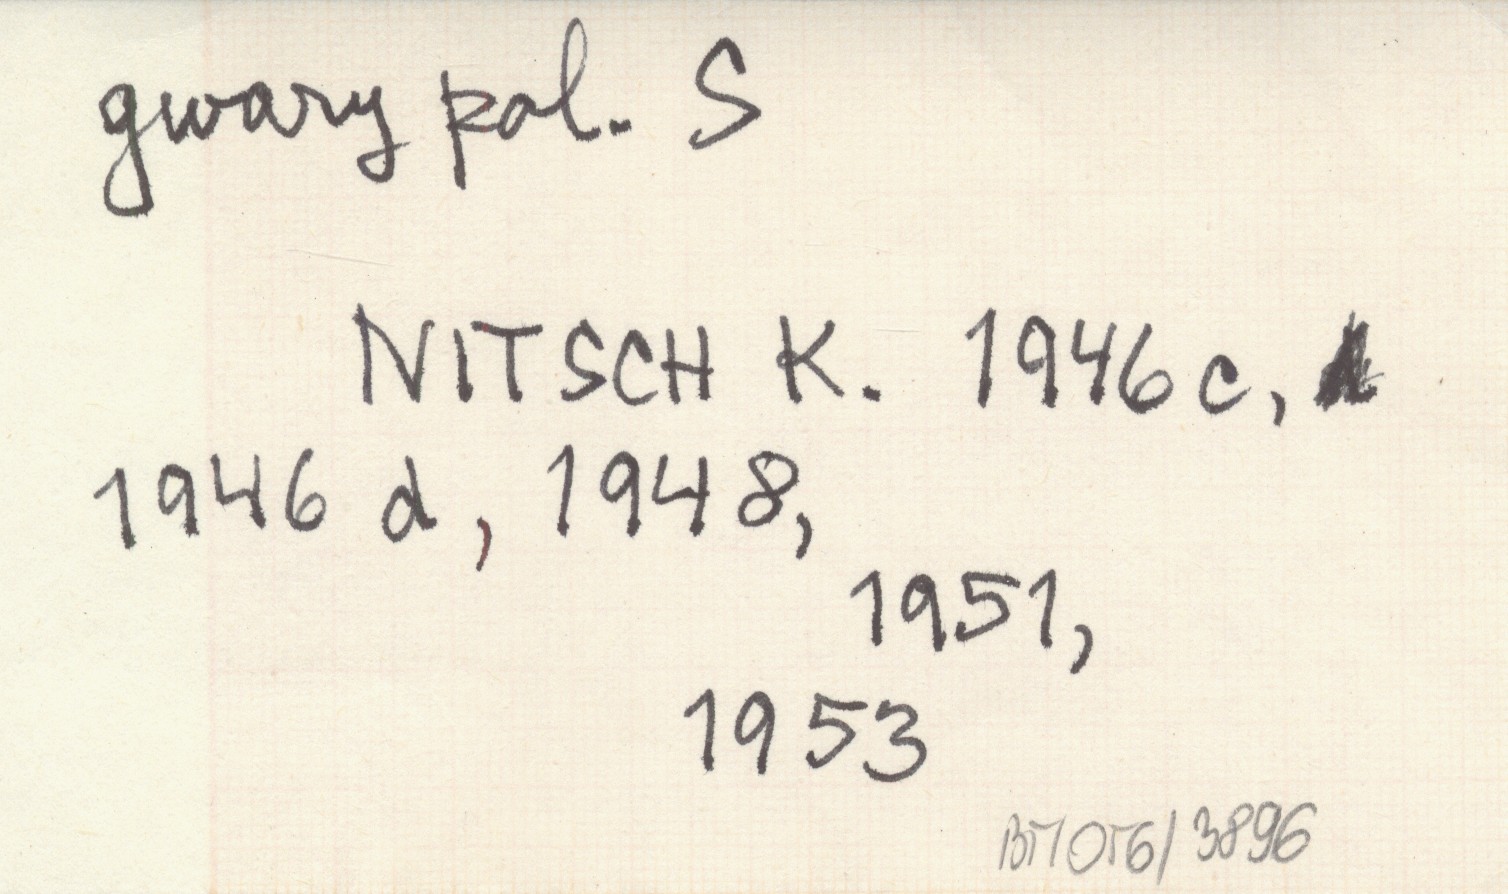 gwary pol. S
NITSCH K. 1946 c,
1946 d, 1948,
1951,
1953
3896